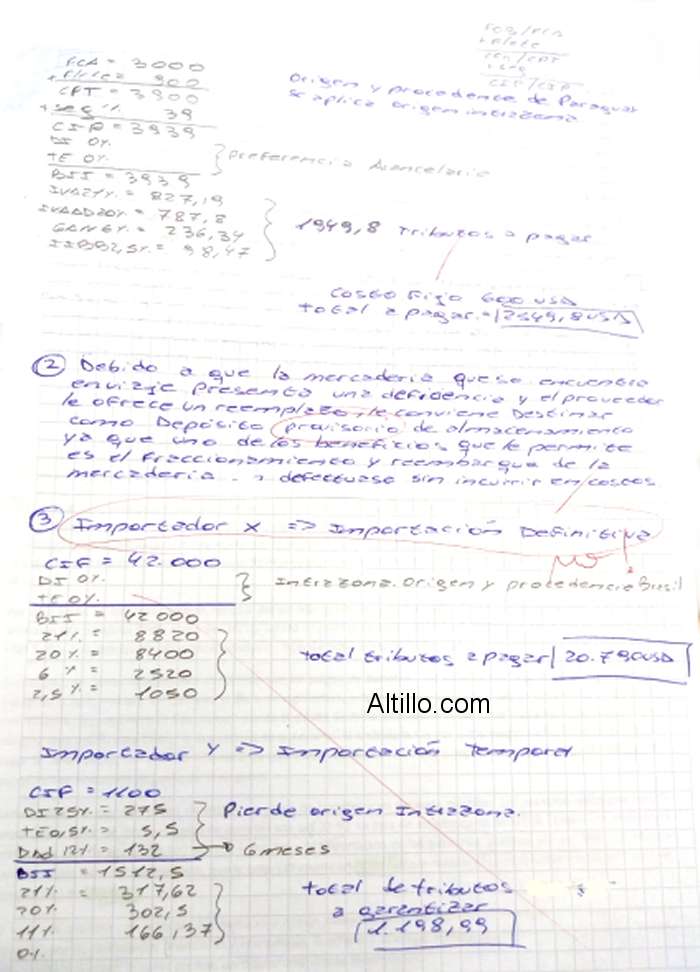 FOB/FCA
+ Flete
CFR/CPT
+ Seg
CIF/CIP
FCA = 3000
+ Flete = 900
CPT = 3900
+ seg 1% 39
CIP = 3939
DI 0%
TE 0%
} preferencia Arancelaria
Origen y procedente de Paraguay
se aplica origen intrazona
BII = 3939
IVA 21% = 827,19
IVAAD20% = 787,8
GAN6% = 236,34
IIBB2,5% = 98,47
1949,8 tributos a pagar
Costo Fijo 600 USD
total a pagar = 2549,8USD
2 Debido a que la mercaderia que se encuentra
en viaje presenta una deficiencia y el proveedor
le ofrece un reemplazo, le conviene Destinar
como Depósito provisorio de almacenamiento
ya que uno de los beneficios que le permite
es el fraccionamiento y reembarque de la
mercaderia defectuosa sin incurrir en costos
3 Importador X => Importación Definitiva
NO
CIF = 42.000
DI 0%
TE 0%
} Intrazona. Origen y procedencia Brasil
BII = 42 000
21% = 8820
20% = 8400
6% = 2520
2,5% = 1050
total tributos a pagar 20.790USD
Altillo.com
Importador Y => Importación Temporal
CIF = 1100
DI25% = 275
TE0,5% = 5,5
DAd 12% = 132 → 6 meses
} Pierde origen Intrazona.
BII = 1512,5
21% = 317,62
20% 302,5
11% 166,37
0%
total de tributos
a garantizar
1.198,99